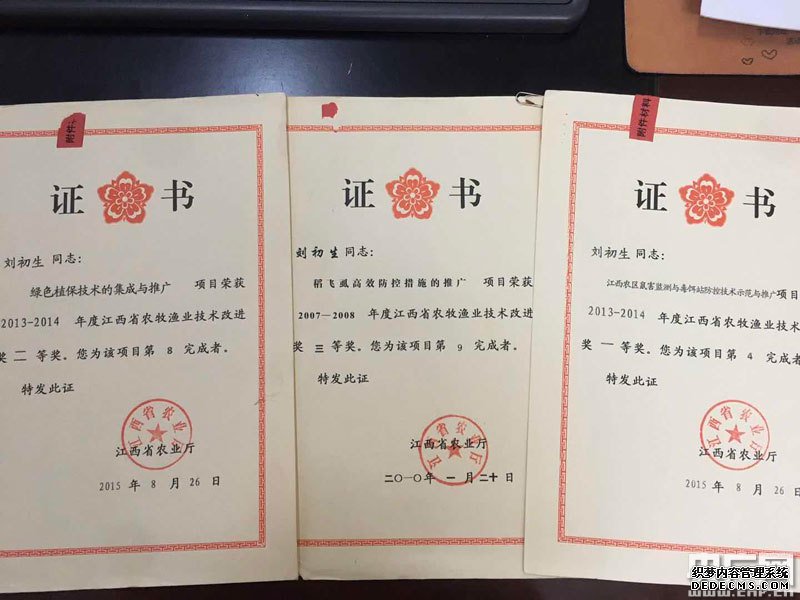 附件
证书
刘初生 同志:
绿色植保技术的集成与推广 项目荣获
2013-2014 年度江西省农牧渔业技术改进
奖 二 等奖。您为该项目第 8 完成者。
特发此证
江西省农业厅
江西省农业厅
2015 年 8 月 26 日
证书
刘初生 同志:
稻飞虱高效防控措施的推广 项目荣获
2007—2008 年度江西省农牧渔业技术改进
奖 三 等奖。您为该项目第 9 完成者。
特发此证
江西省农业厅
江西省农业厅
二〇一〇年 一 月 二十 日
附件材料
证书
刘初生 同志:
江西农区鼠害监测与毒饵站防控技术示范与推广 项目
2013-2014 年度江西省农牧渔业技术
奖 一 等奖。您为该项目第 4 完成者
特发此证
江西省农业厅
江西省农业厅
2015 年 8 月 26 日
织梦内容管理系统
DEDECMS.COM